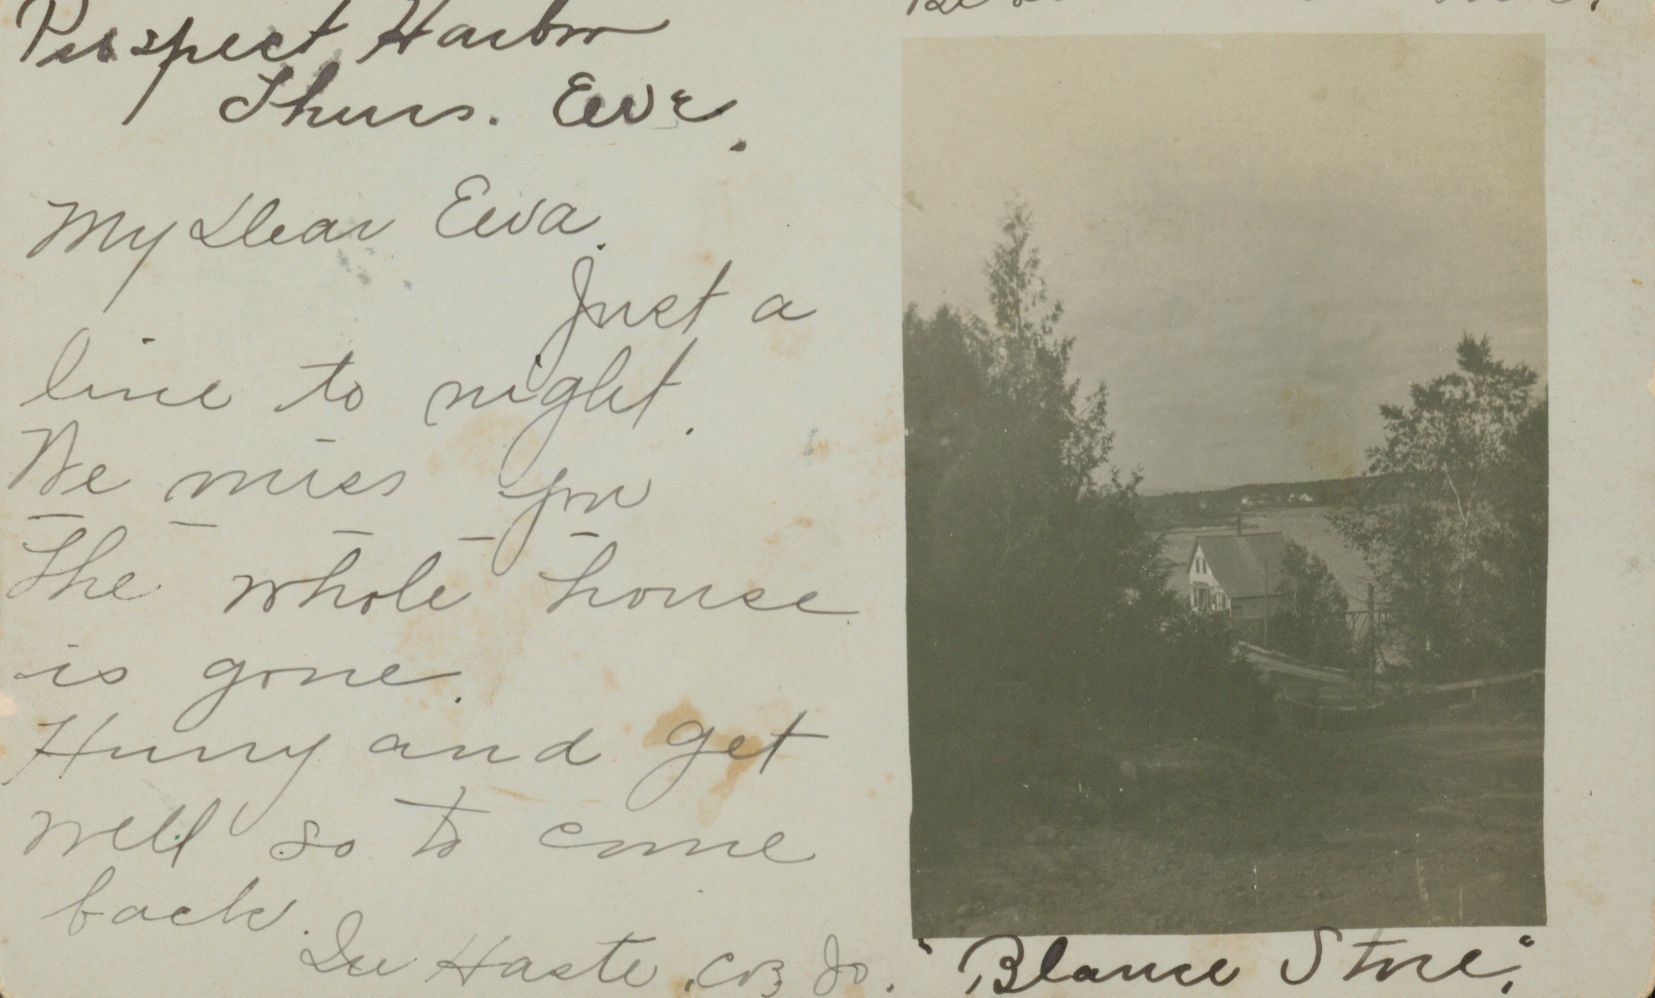 Prospect Harbor
Thurs. Eve.
My Dear Eva.
Just a
line to night.
We miss you
The whole house
is gone.
Hurry and get
well so to come
back.
In Haste.
"Blance Store."